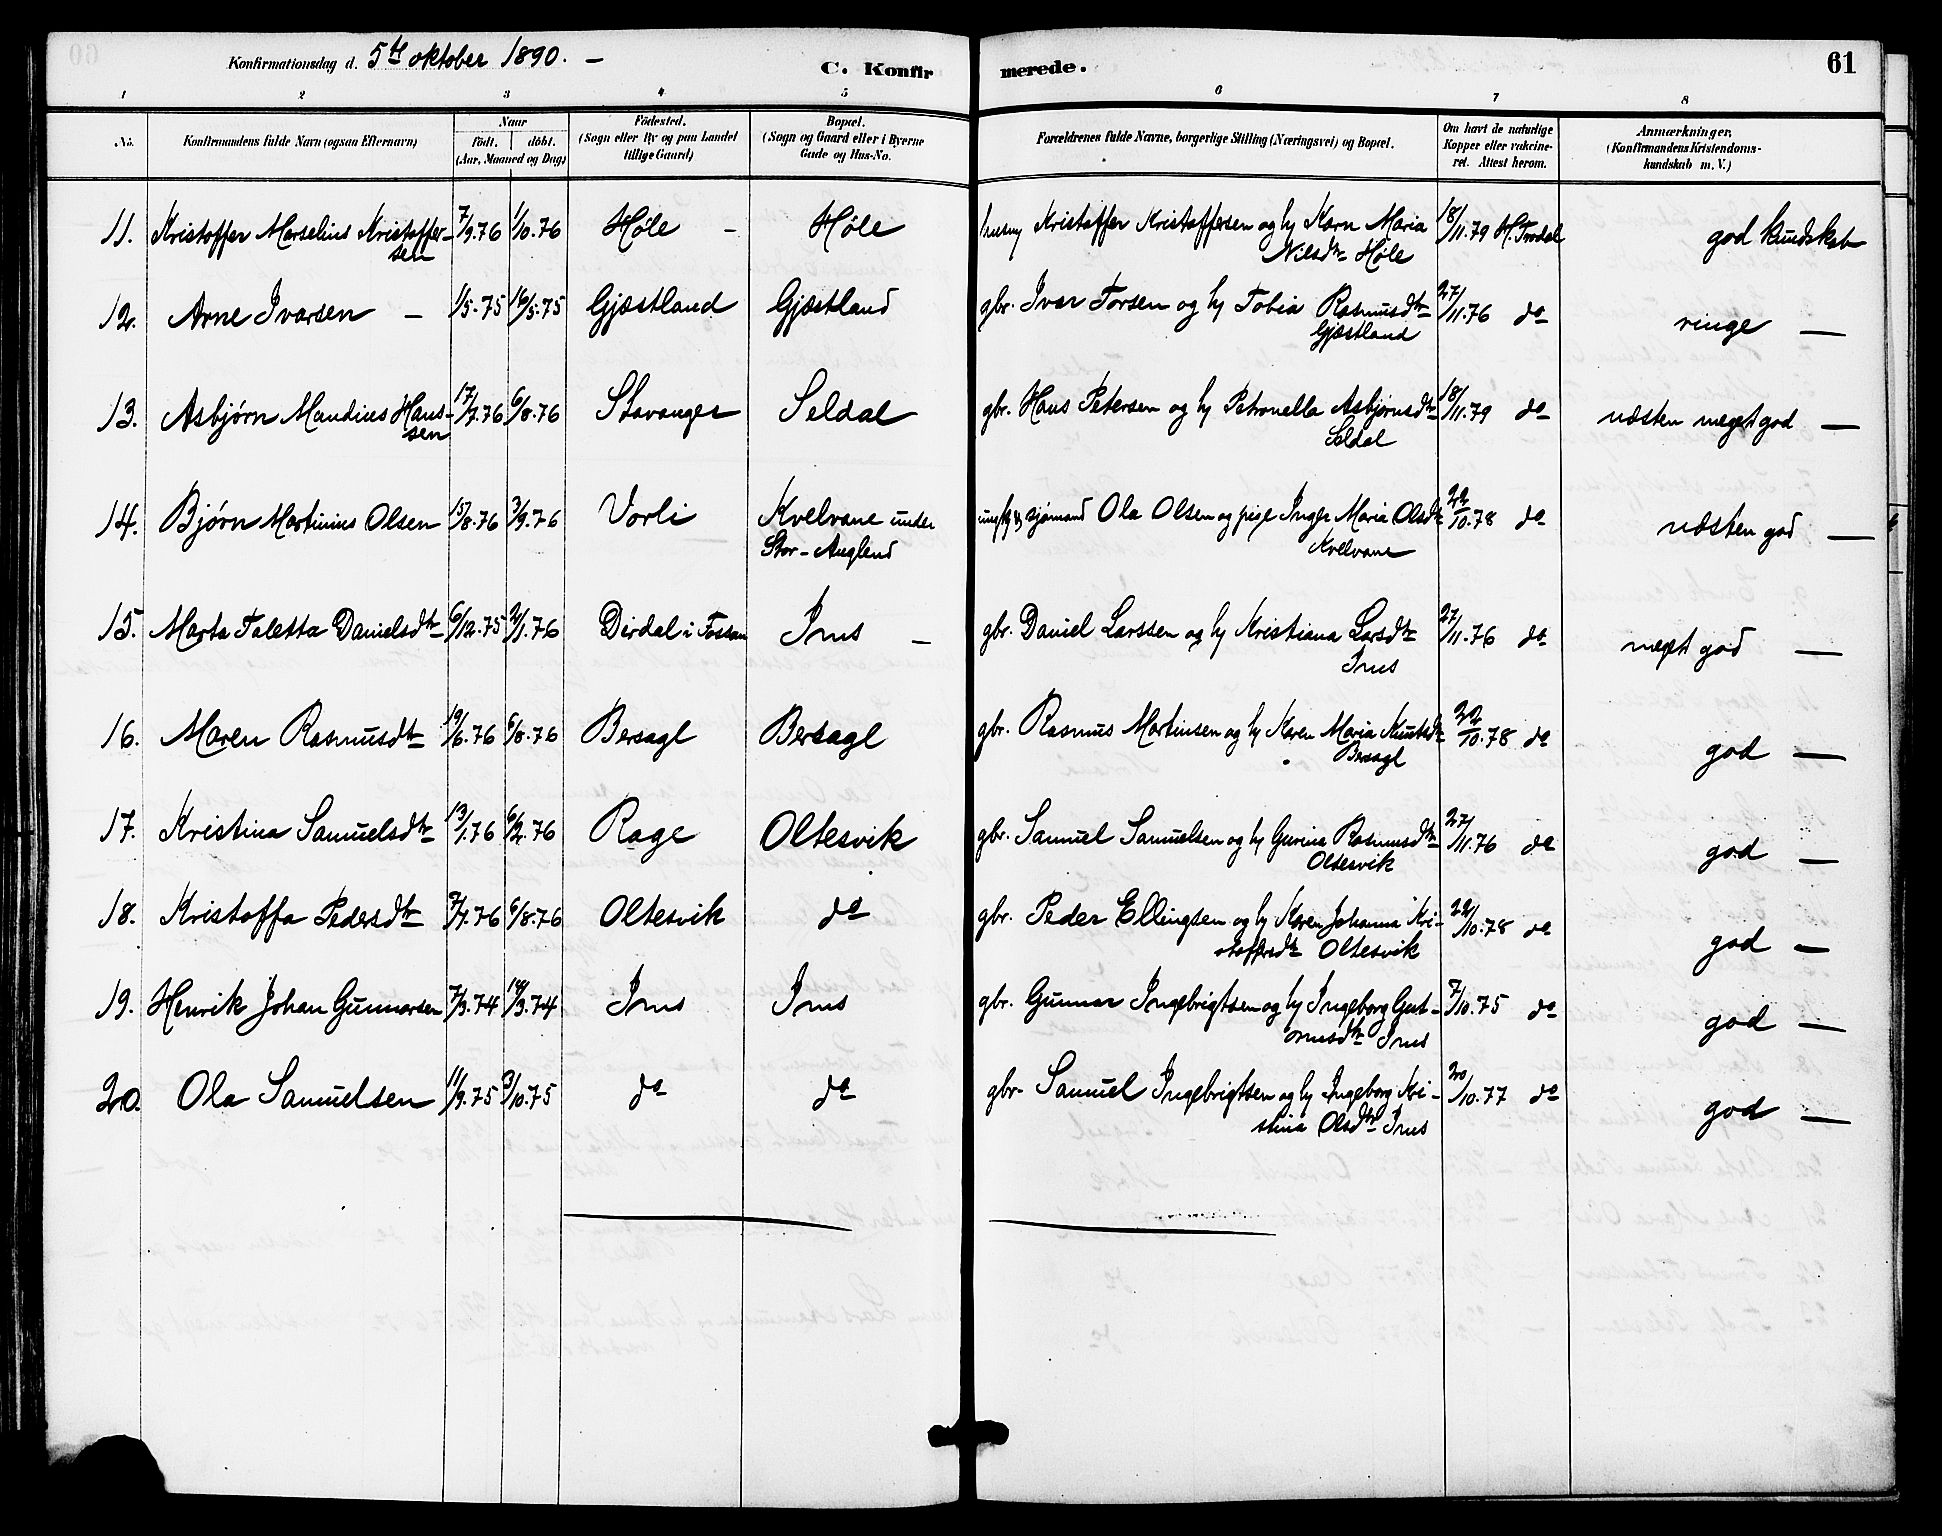 Konfirmationsdag d. 5te oktober 1890. –
C. Konfirmerede.
61
1 2 3 4 5 6 7 8
No.
Konfirmandens fulde Navn (ogsaa Efternavn)
Naar
födt. döbt.
(Aar, Maaned og Dag)
Födested.
(Sogn eller By og paa Landet
tillige Gaard)
Bopæl.
(Sogn og Gaard eller i Byerne
Gade og Hus-No.
Forældrenes fulde Navne, borgerlige Stilling (Næringsvei) og Bopæl.
Om havt de naturlige
Kopper eller vakcine-
ret. Attest herom.
Anmærkninger.
(Konfirmandens Kristendoms-
kundskab m. V.)
11. Kristoffer Marselius Kristoffer- 7/9.76 1/10.76 Høle – Høle husmg Kristoffer Kristoffersen og h Karn Maria 18/11.79 god kundskab
sen Nilsdtr Høle
12. Arne Ivarsen – 1/5.75 16/5.75 Gjæstland Gjæstland gbr. Ivar Torsen og h Tobia Rasmusdtr 27/11.76 do ringe —
Gjæstland
13. Asbjørn Mandius Hans- 17/7.76 6/8.76 Stavanger Seldal gbr. Hans Petersen og h Petronella Asbjørnsdtr 18/11.79 do næsten meget god —
sen Seldal
14. Bjørn Martinius Olsen 15/8.76 3/9.76 Vorli Kvelvane under sjømand Ola Olsen og pige Inger Maria Olsdtr 22/10.78 do næsten god —
Stor-Auglend Kvelvane
15. Marta Taletta Danielsdtr 6/12.75 2/1.76 Dirdal i Fossan Ims – gbr. Daniel Larssen og h Kristiana Larsdtr 27/11.76 do meget god —
Ims
16. Maren Rasmusdtr 19/6.76 6/8.76 Bersagl Bersagl gbr. Rasmus Martinsen og h Karen Maria Knutsdtr 22/10.78 do god —
Bersagl
17. Kristina Samuelsdtr 13/1.76 6/2.76 Rage Oltesvik gbr. Samuel Samuelsen og h Gurina Rasmusdtr 27/11.76 do god —
Oltesvik
18. Kristoffa Pedersdtr 7/7.76 6/8.76 Oltesvik do gbr. Peder Ellingsen og h Karen Johanna Kri- 22/10.78 do god —
stoffersdtr Oltesvik
19. Henrik Johan Gunnarsen 7/3.74 /3.74 Ims Ims gbr. Gunnar Ingebrigtsen og h Ingeborg Gut- 7/10.75 do god —
ormsdtr Ims
20. Ola Samuelsen 11/9.75 3/10.75 do do gbr. Samuel Ingebrigtsen og h Ingeborg Kri- 20/10.77 do god —
stina Olsdtr Ims